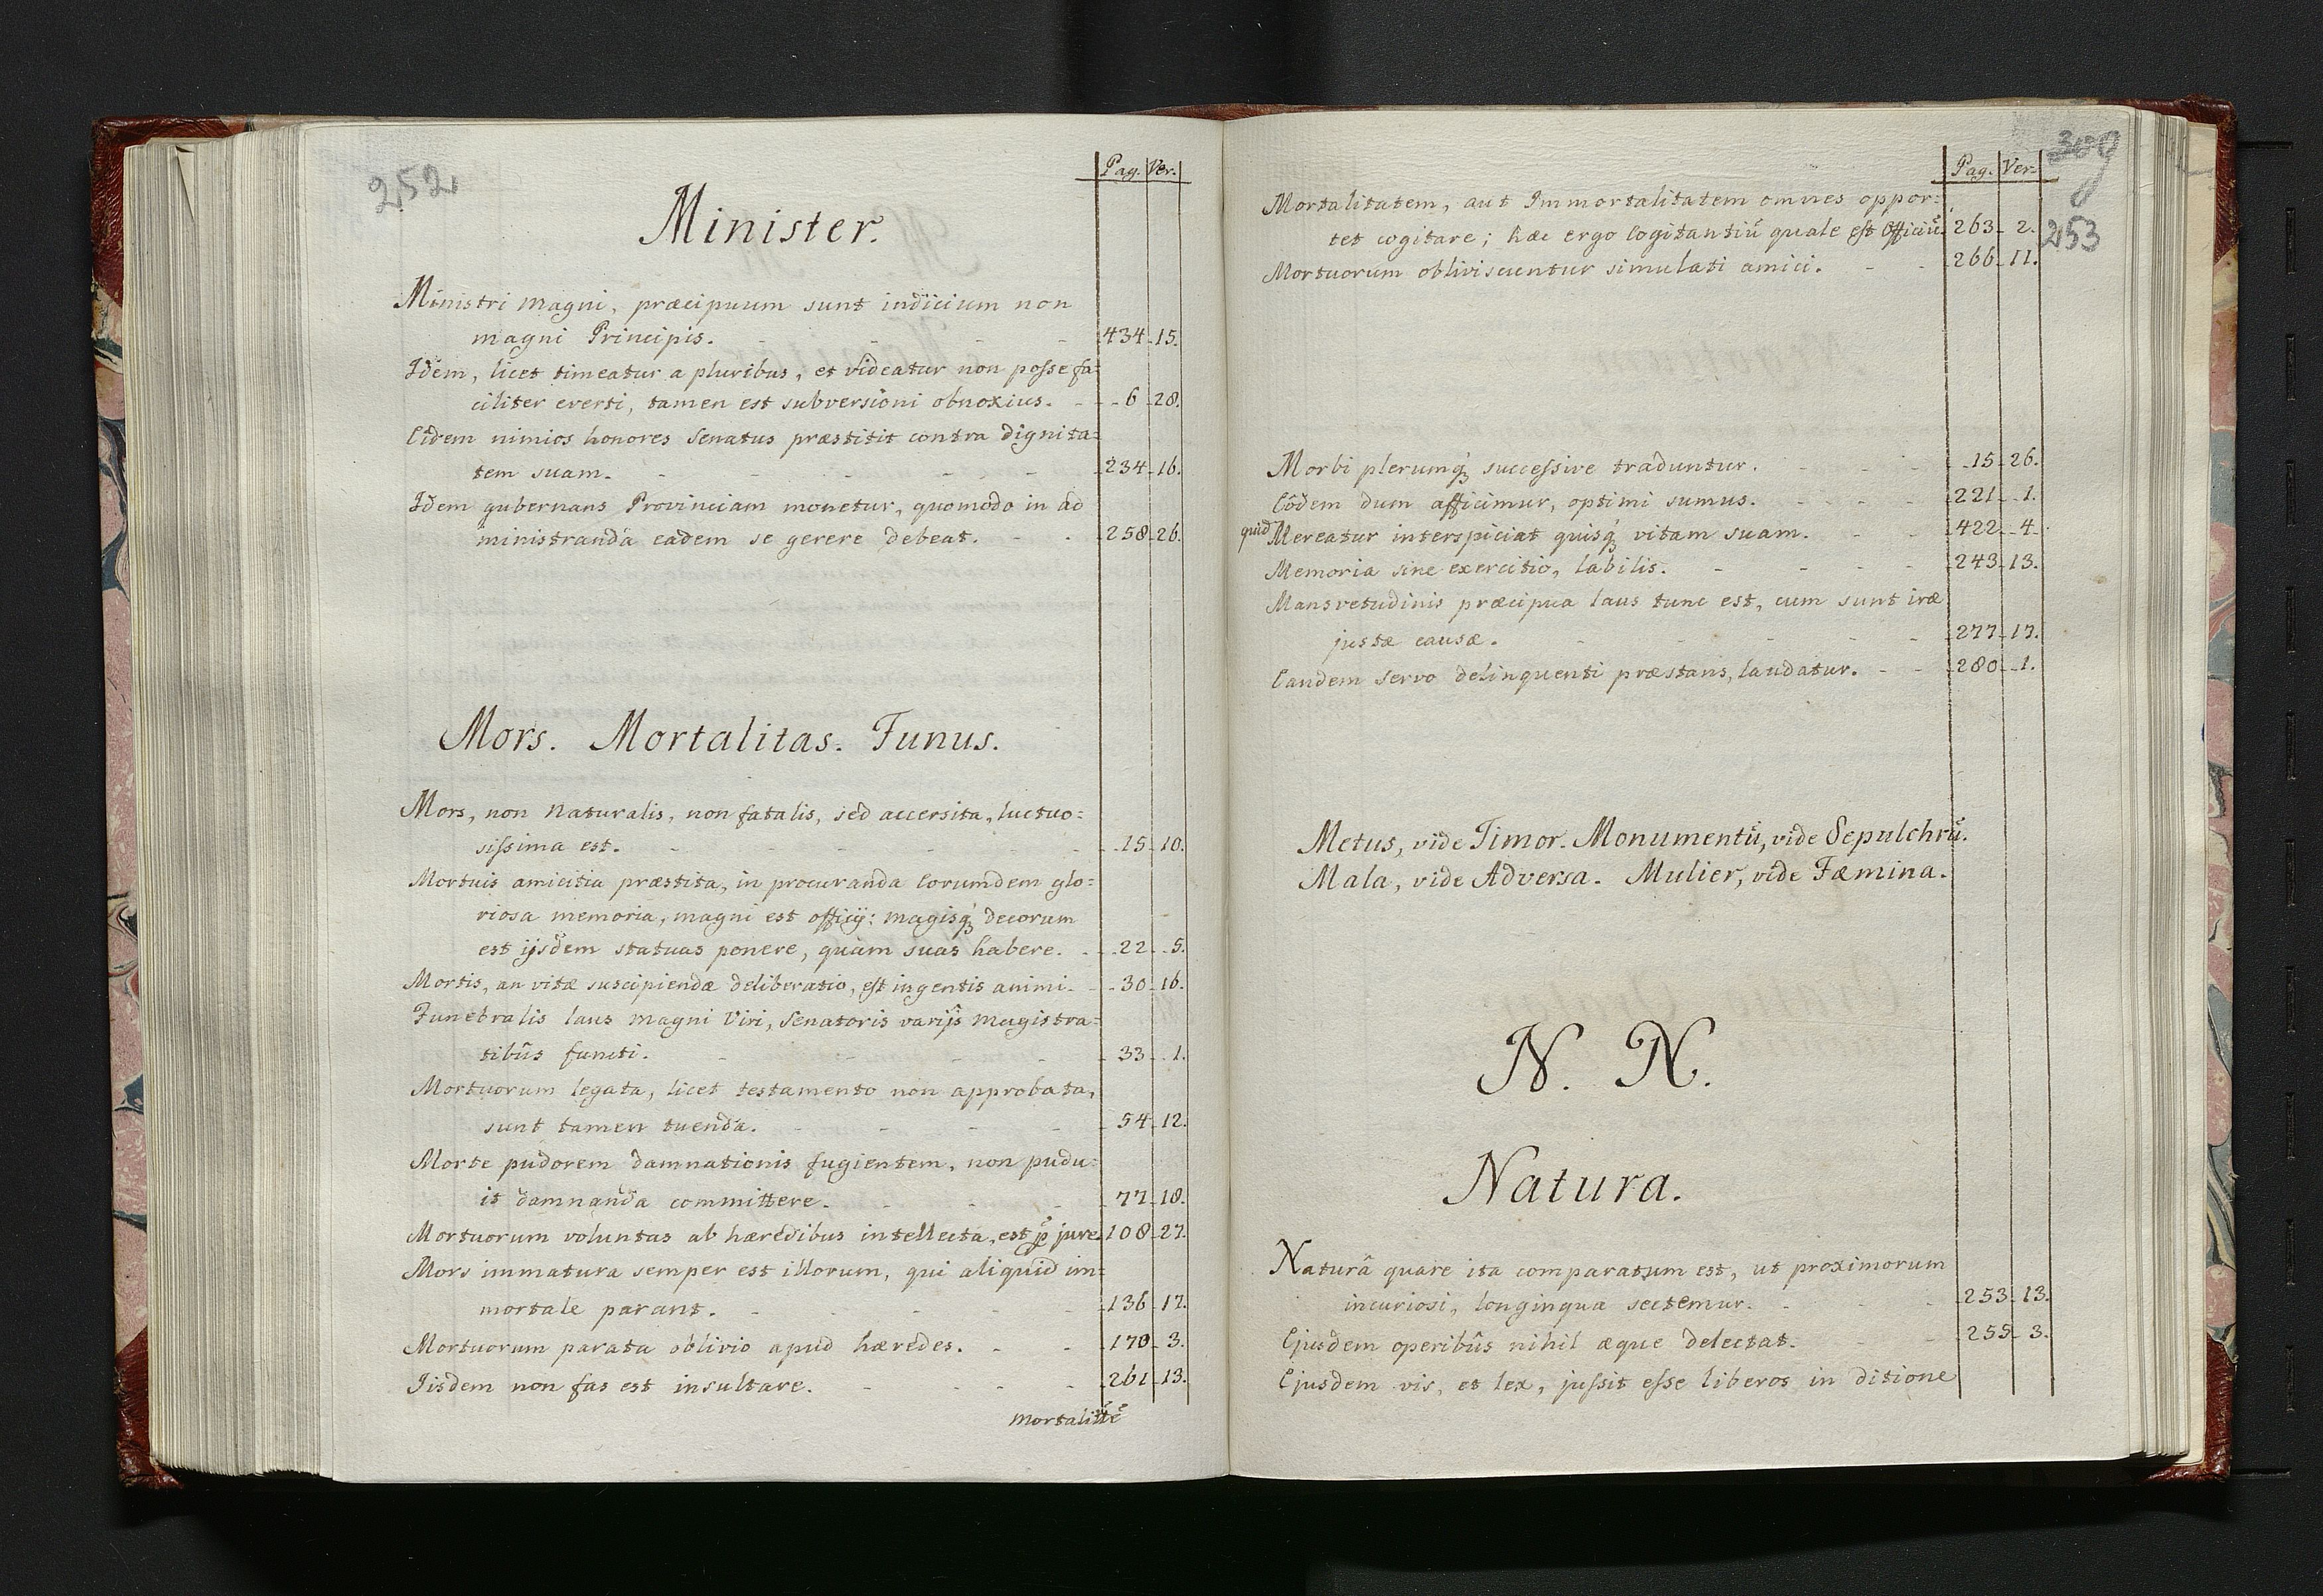 252
Pag. Ver.
Minister.
Ministri magni, præcipuum sunt indicium non
magni Principis. - - - - 434 15.
Idem, licet timeatur a pluribus, et videatur non posse fa=
ciliter everti, tamen est subversioni obnoxius. - 6 28.
Eidem nimios honores Senatus præstitit contra dignita=
tem suam. - - - - - 234 16.
Idem gubernans Provinciam monetur, quomodo in ad
ministrandâ eadem se gerere debeat. - - 258 26.
Mors. Mortalitas. Funus.
Mors, non naturalis, non fatalis, sed accersita, luctuo=
sissima est. - - - - - 15 10.
Mortuis amicitia præstita, in procuranda Eorumdem glo=
riosa memoria, magni est officij: magisq́ decorum
est ijsdem statuas ponere, quàm suas habere. - 22 5.
Mortis, an vitæ suscipiendæ deliberatio, est ingentis animi. - 30 16.
Funebralis laus magni Viri, Senatoris varijs magistra=
tibûs functi. - - - - - 33 1.
Mortuorum legata, licet testamento non approbata,
sunt tamen tuenda. - - - - 54 12.
Morte pudorem damnationis fugientem, non pudu=
it damnanda committere. - - - 77 18.
Mortuorum voluntas ab hæredibus intellecta, est p̃ jure. 108 27.
Mors immatura semper est illorum, qui aliquid im=
mortale parant. - - - - - 136 17.
Mortuorum parata oblivio apud hæredes. - - 170 3.
Iisdem non fas est insultare. - - - - 261 13.
309
253
Pag. Ver.
Mortalitatem, aut Immortalitatem omnes oppor=
tet cogitare; hæc ergo Cogitantiũ quale est Officiũ. 263 2.
Mortuorum obliviscuntur simulati amici. - - 266 11.
Morbi plerumq́ successive traduntur. - - - 15 26.
Eôdem dum afficimur, optimi sumus. - - - 221 1.
quid Mereatur interspiciat quisq́ vitam suam. - - 422 4.
Memoria sine exercitio, labilis. - - - - 243 13.
Mansvetudinis præcipua laus tunc est, cum sunt iræ
justæ causæ. - - - - - 277 17.
Eandem servo delinquenti præstans, laudatur. - - 280 1.
Metus, vide Timor. Monumentũ, vide Sepulchrũ.
Mala, vide Adversa. Mulier, vide Fæmina.
N. N.
Natura.
Naturâ quare ita comparatum est, ut proximorum
incuriosi, longinqua sectemur. - - - 253 13.
Ejusdem operibûs nihil æque delectat. - - 255 3.
Ejusdem vis, et lex, jussit esse liberos in ditione